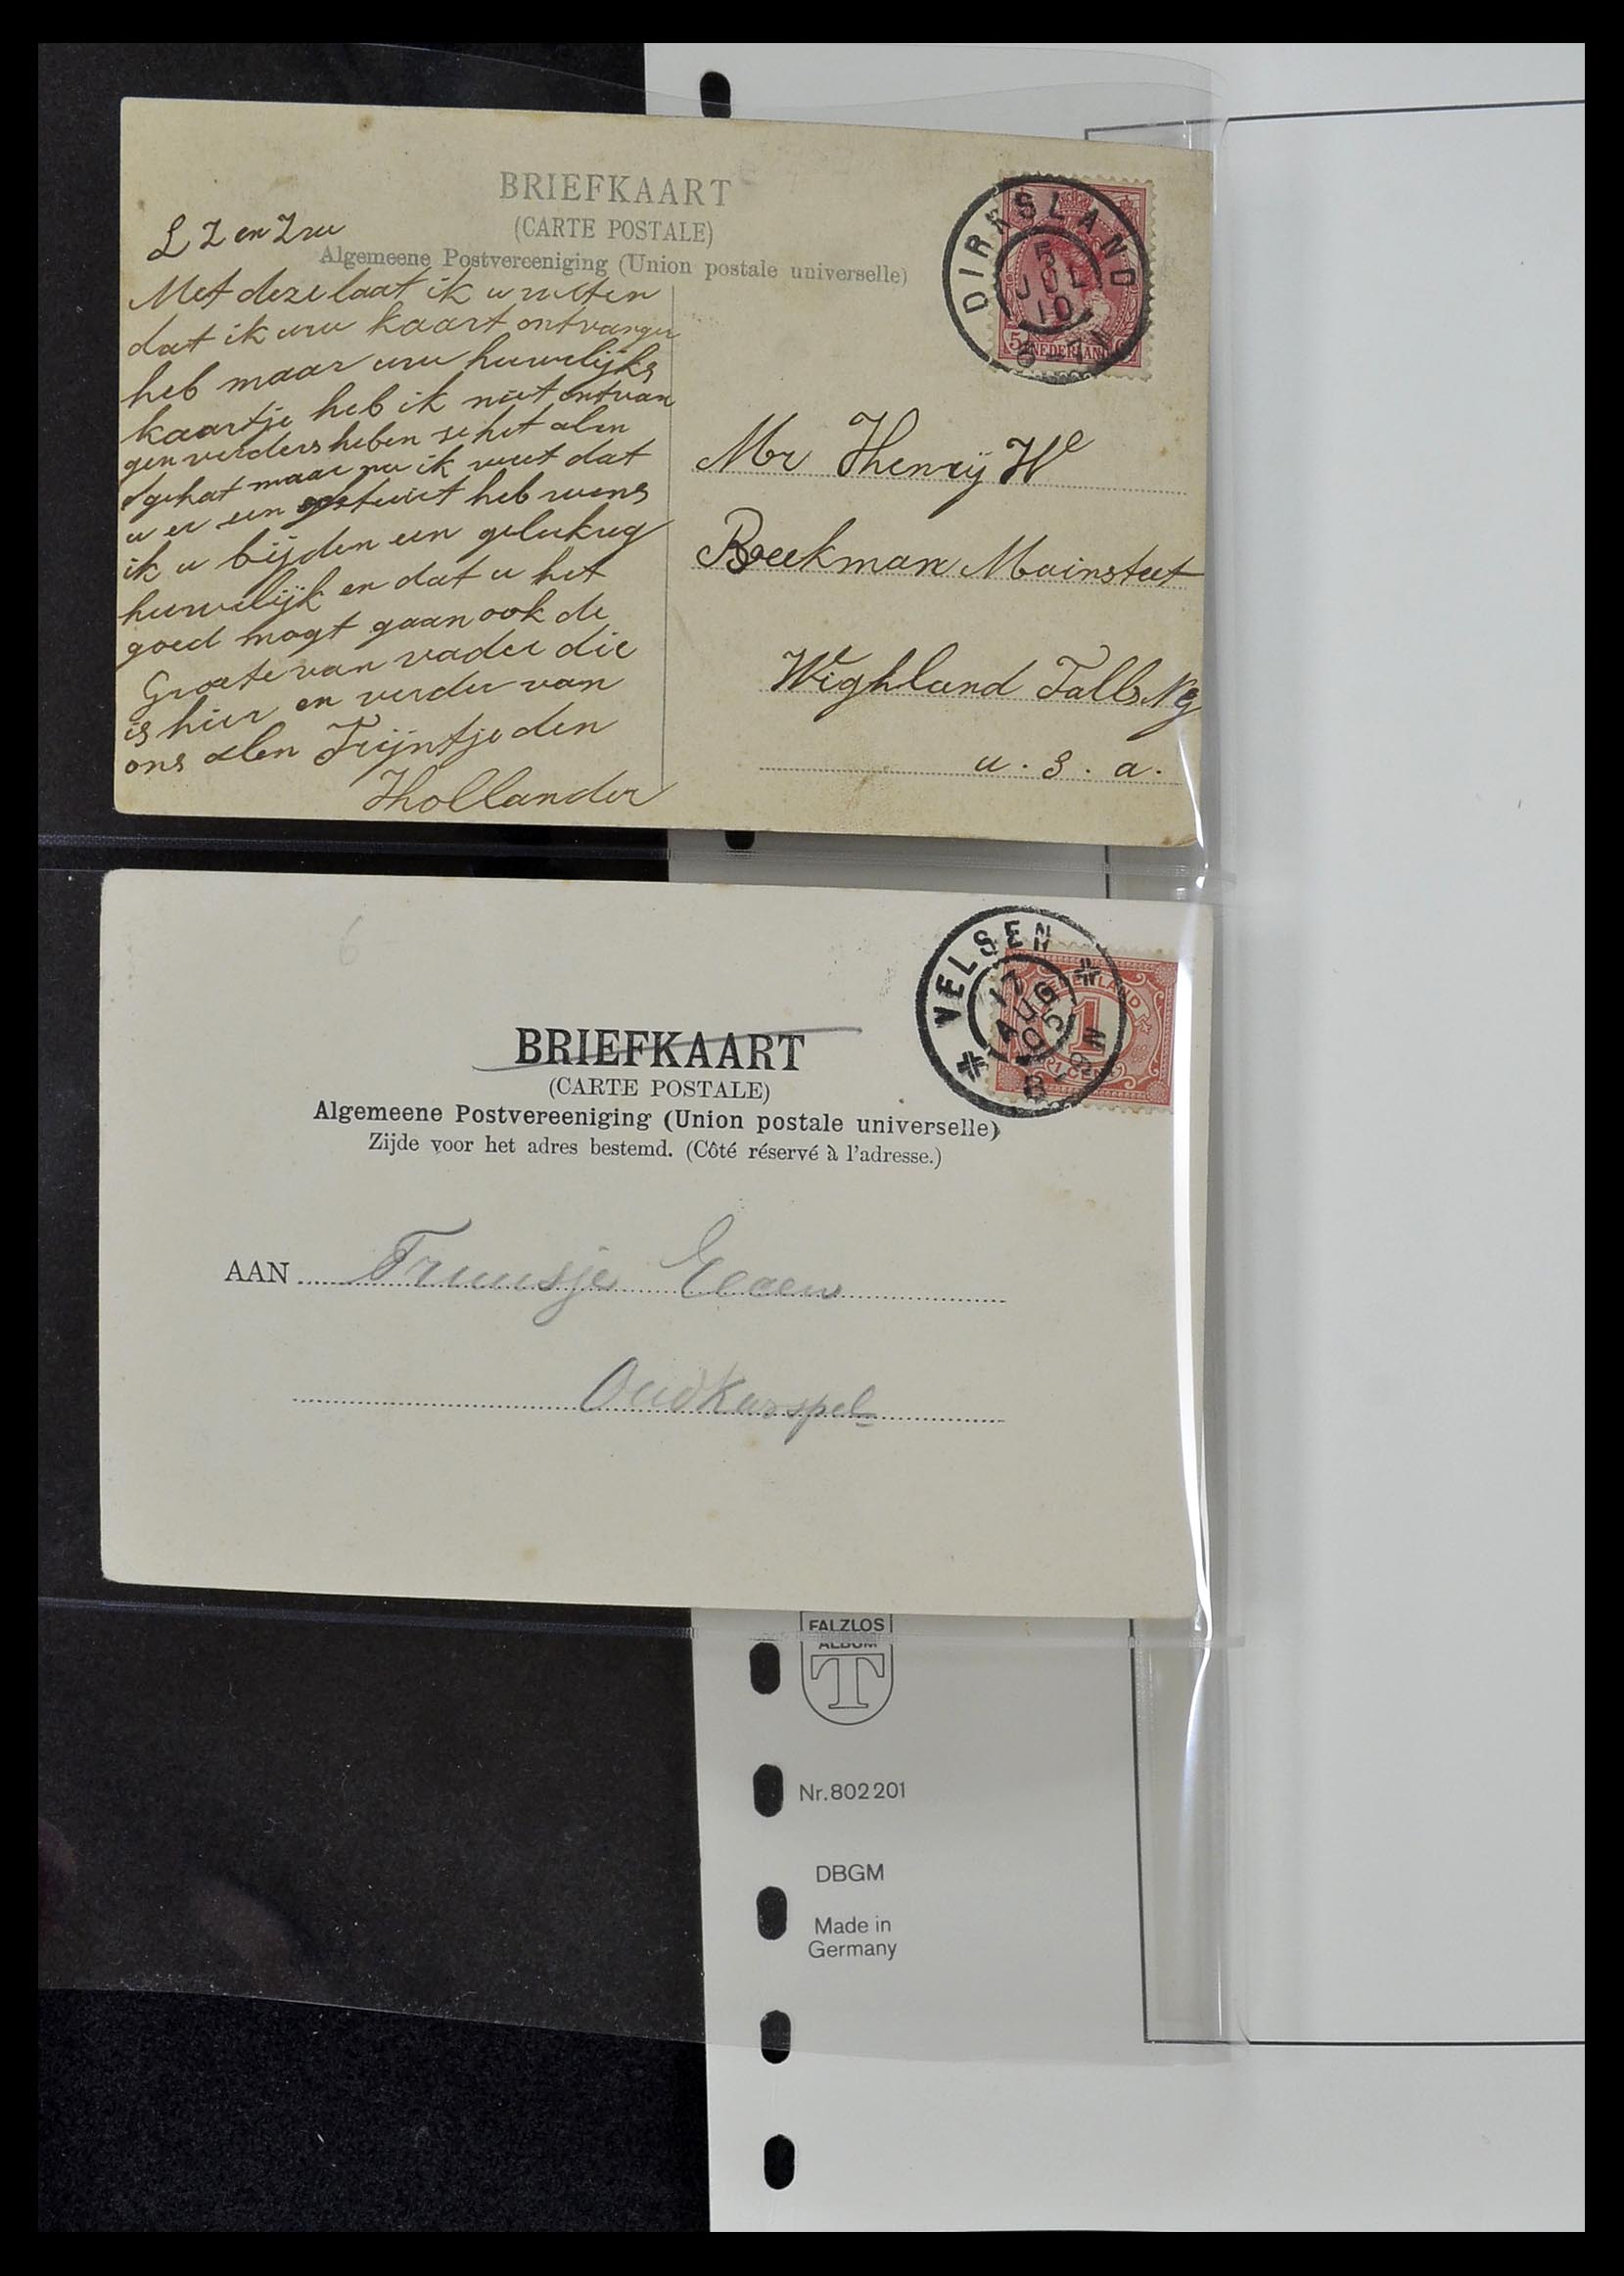 BRIEFKAART
(CARTE POSTALE)
Algemeene Postvereeniging (Union postale universelle)
L Z en Zw
Met deze laat ik u weten
dat ik uw kaart ontvangen
heb maar uw huwelijks
kaartje heb ik niet ontvan
gen verders heben ze het alen
gehat maar nu ik weet dat
u er een gestuurt heb wens
ik u bijden een gelukug
huwelijk en dat u het
goed mogt gaan ook de
Groete van vader die
is hier en verder van
ons alen Trijntje den
Hollander
DIRKSLAND
5
JUL
10
5-7N
5 NEDERLAND
Mr Henrij W
Beekman Mainsteet
Highland Falls Ny
u. s. a.
6
VELSEN
17
AUG
05
8-9N
NEDERLAND
1
1 CENT
BRIEFKAART
(CARTE POSTALE)
Algemeene Postvereeniging (Union postale universelle)
Zijde voor het adres bestemd. (Côté réservé à l'adresse.)
AAN Truusje
Oudkarspel
FALZLOS
ALBUM
T
Nr. 802 201
DBGM
Made in
Germany